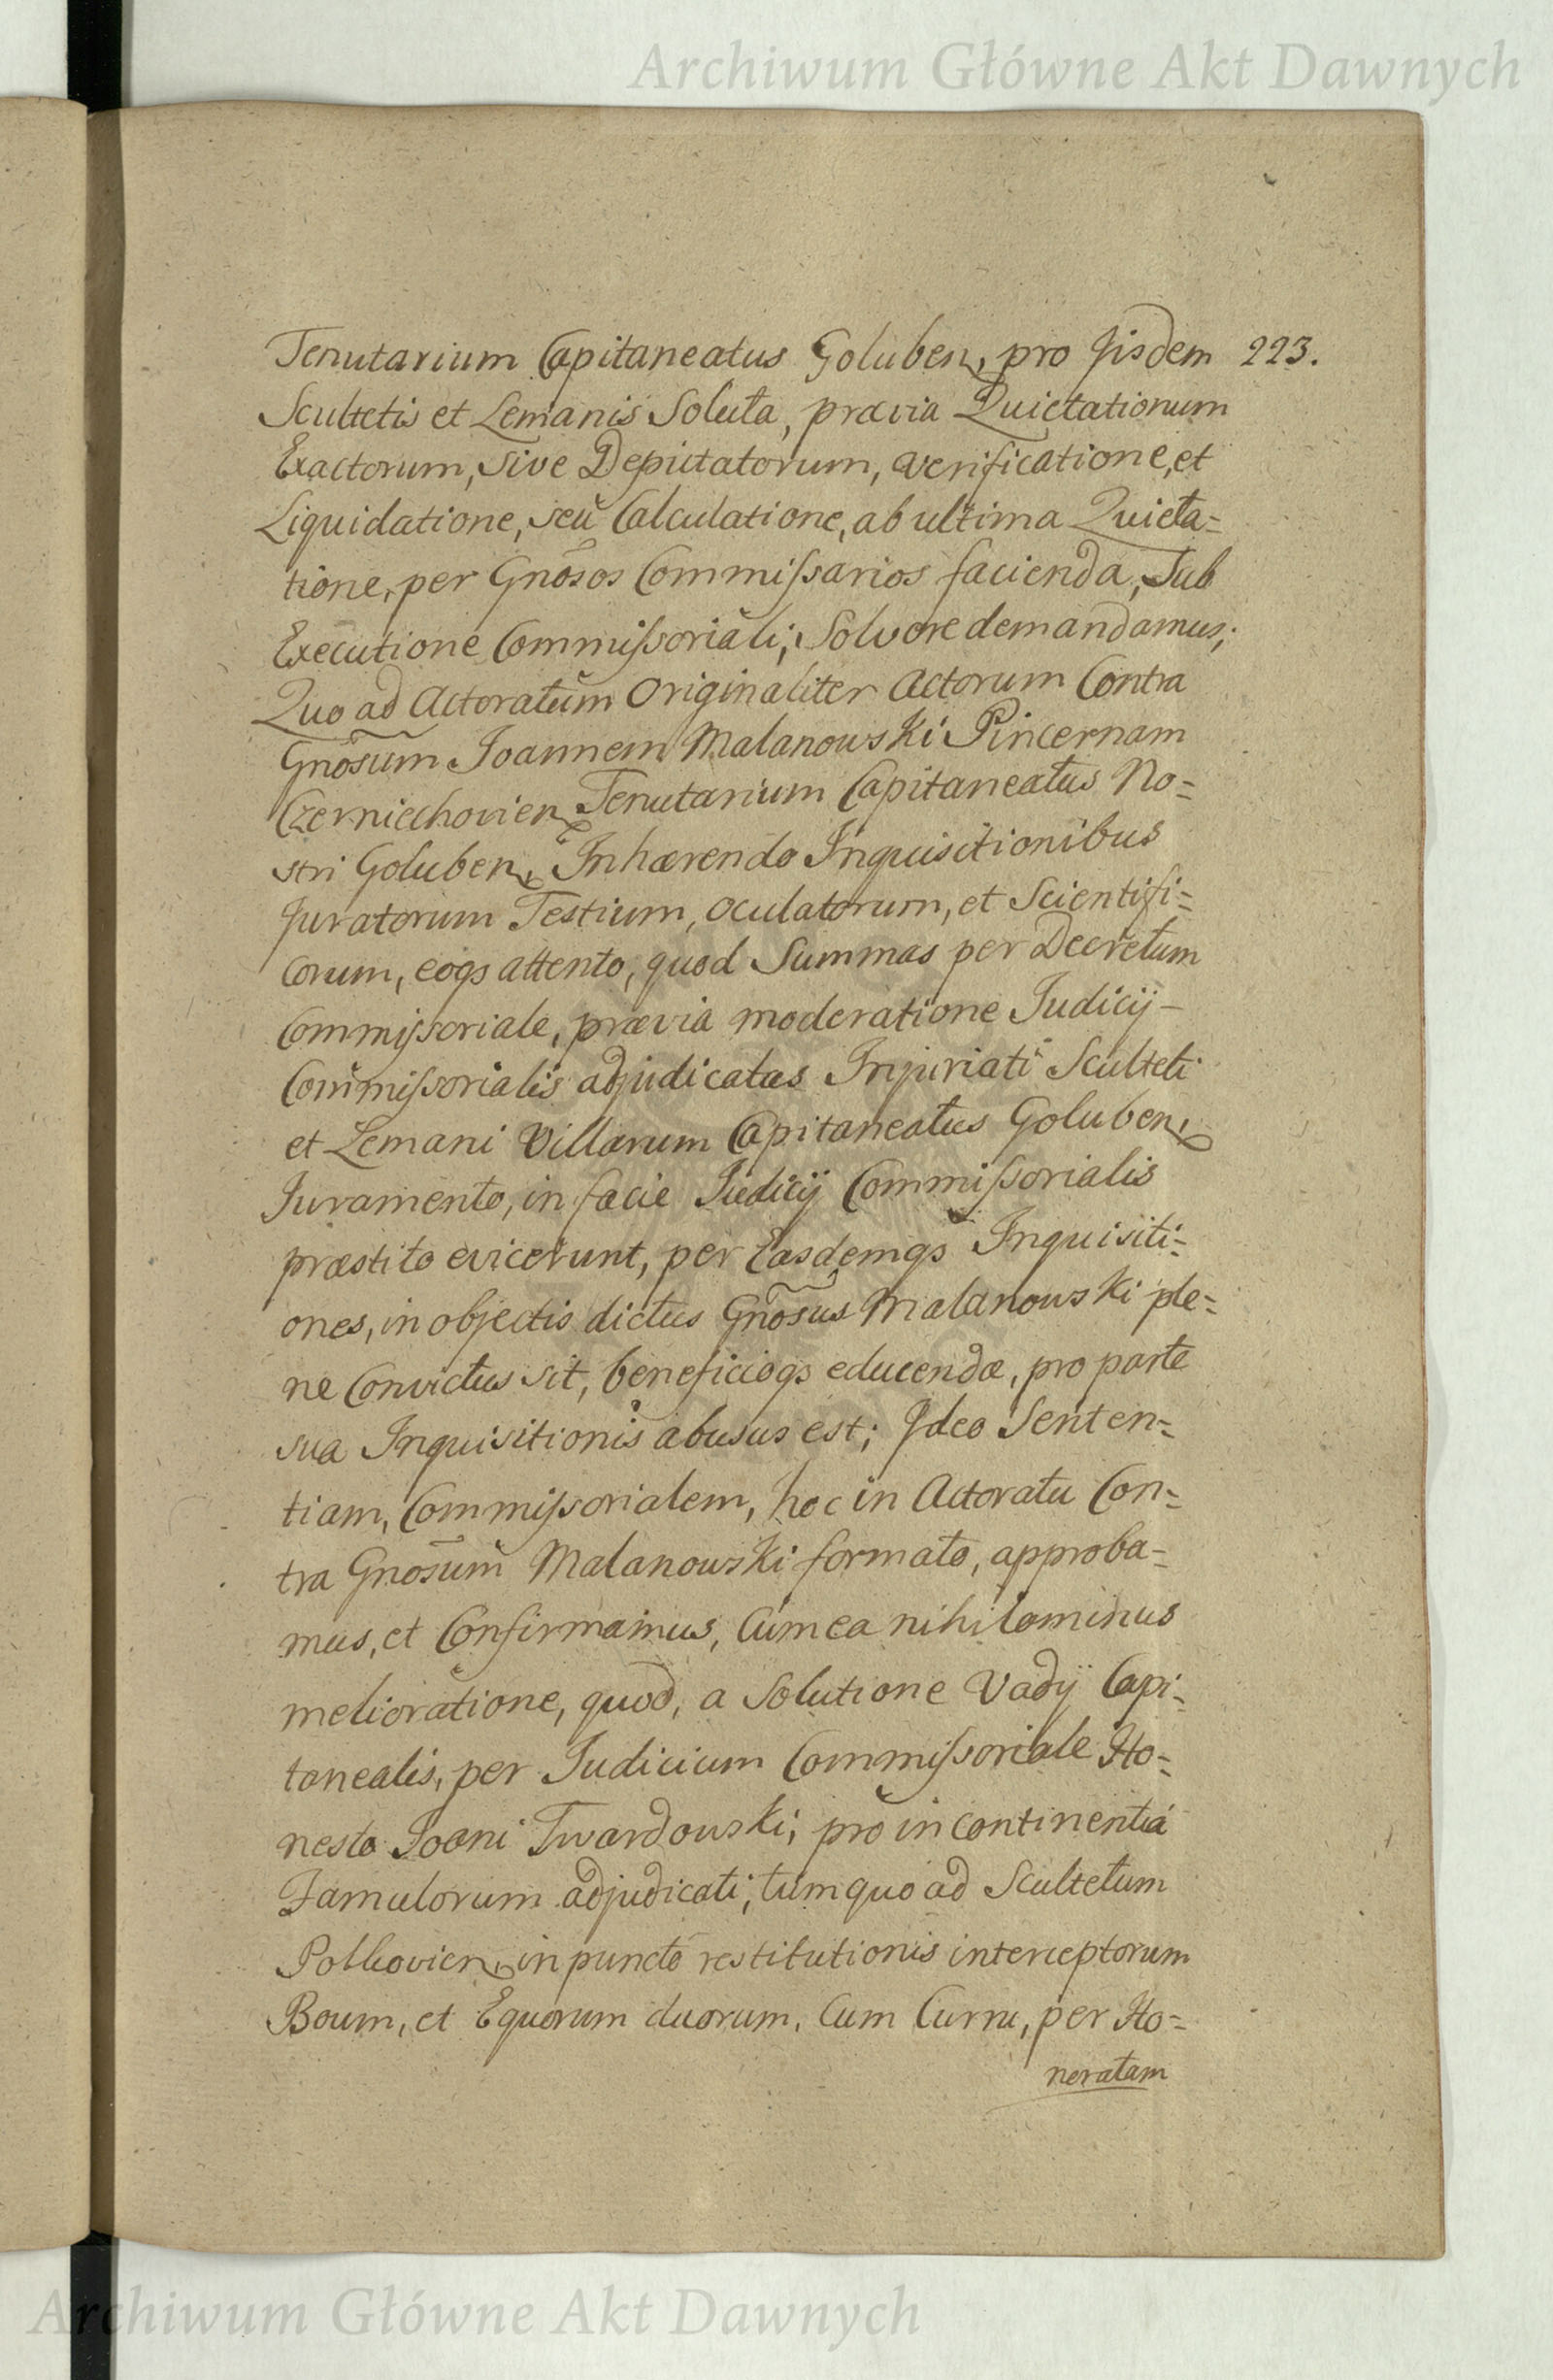 Archiwum Główne Akt Dawnych
Tenutarium Capitaneatus Goluben, pro Jisdem 223.
Scultetis et Lemanis Soluta, prævia Quietationum
Exactorum, sive Deputatorum, verificatione, et
Liquidatione, seu Calculatione, ab ultima Quieta=
tione, per Gnosos Commissarios facienda, Sub
Executione Commissoriali, Solvere demandamus;
Quo ad Actoratum Originaliter Actorum Contra
Gnosum Joannem Malanowski Pincernam
Czerniechovien Tenutarium Capitaneatus No=
stri Goluben, Inhærendo Inquisitionibus
Juratorum Testium, oculatorum, et Scientifi=
corum, eoqs attento, quod Summas per Decretum
Commissoriale, prævia moderatione Judicij –
Commissorialis adjudicatas Injuriati Sculteti
et Lemani Villarum Capitaneatus Goluben,
Juramento, in facie Judicij Commissorialis
præstito evicerunt, per Easdemqs Inquisiti=
ones, in objectis dictus Gnosus Malanowski ple=
ne Convictus sit, beneficioqs educendæ, pro parte
sua Inquisitionis abusus est; Ideo Senten=
tiam, Commissorialem, hoc in Actoratu Con=
tra Gnosum Malanowski formato, approba=
mus, et Confirmamus, Cum ea nihilominus
melioratione, quod, a Solutione Vadij Capi=
tanealis, per Judicium Commissoriale Ho=
nesto Joani Twardowski, pro incontinentia
Famulorum adjudicati, tum quo ad Scultetum
in puncto restitutionis interceptorum
Boum, et Equorum duorum, Cum Curru, per Ho=
noratam
Archiwum Główne Akt Dawnych